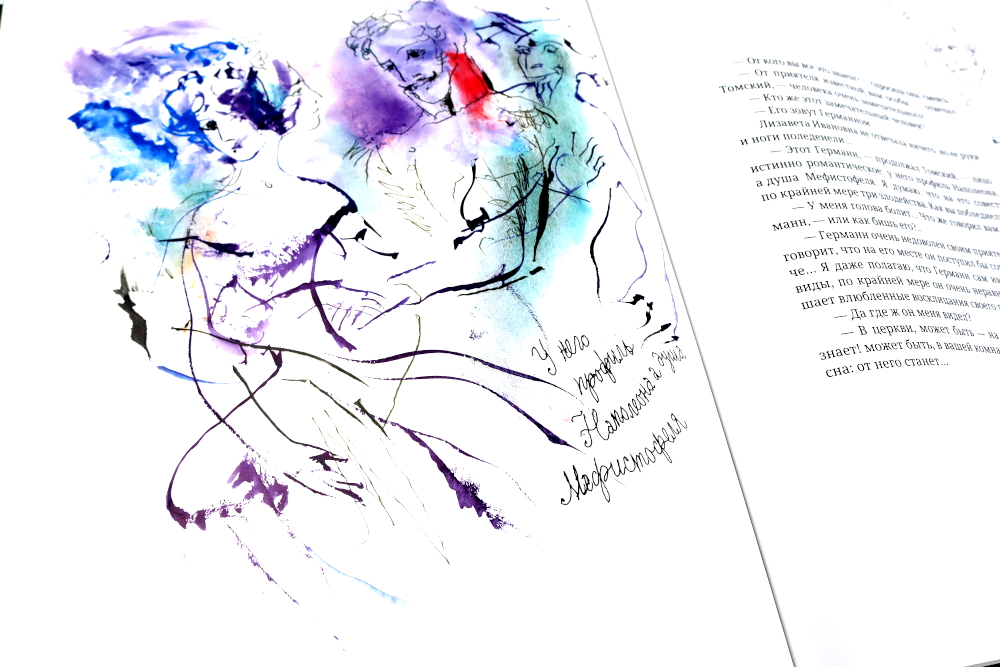 У него
профиль
Наполеона а душа
Мефистофеля
— От кого вы все это знаете? — спросила она
— От приятеля известной вам особы, — отвечал
Томский, — человека очень замечательного.
— Кто же этот замечательный человек?
— Его зовут Германном.
Лизавета Ивановна не отвечала ничего, но ее руки
и ноги поледенели...
— Этот Германн, — продолжал Томский, — лицо
истинно романтическое: у него профиль Наполеона,
а душа Мефистофеля. Я думаю, что на его совест
по крайней мере три злодейства. Как вы побледнели
— У меня голова болит... Что же говорил вам
манн, — или как бишь его?..
— Германн очень недоволен своим прияте
говорит, что на его месте он поступил бы сов
че... Я даже полагаю, что Германн сам им
виды, по крайней мере он очень неравн
шает влюбленные восклицания своего п
— Да где ж он меня видел?
— В церкви, может быть — на
знает! может быть, в вашей комна
сна: от него станет...